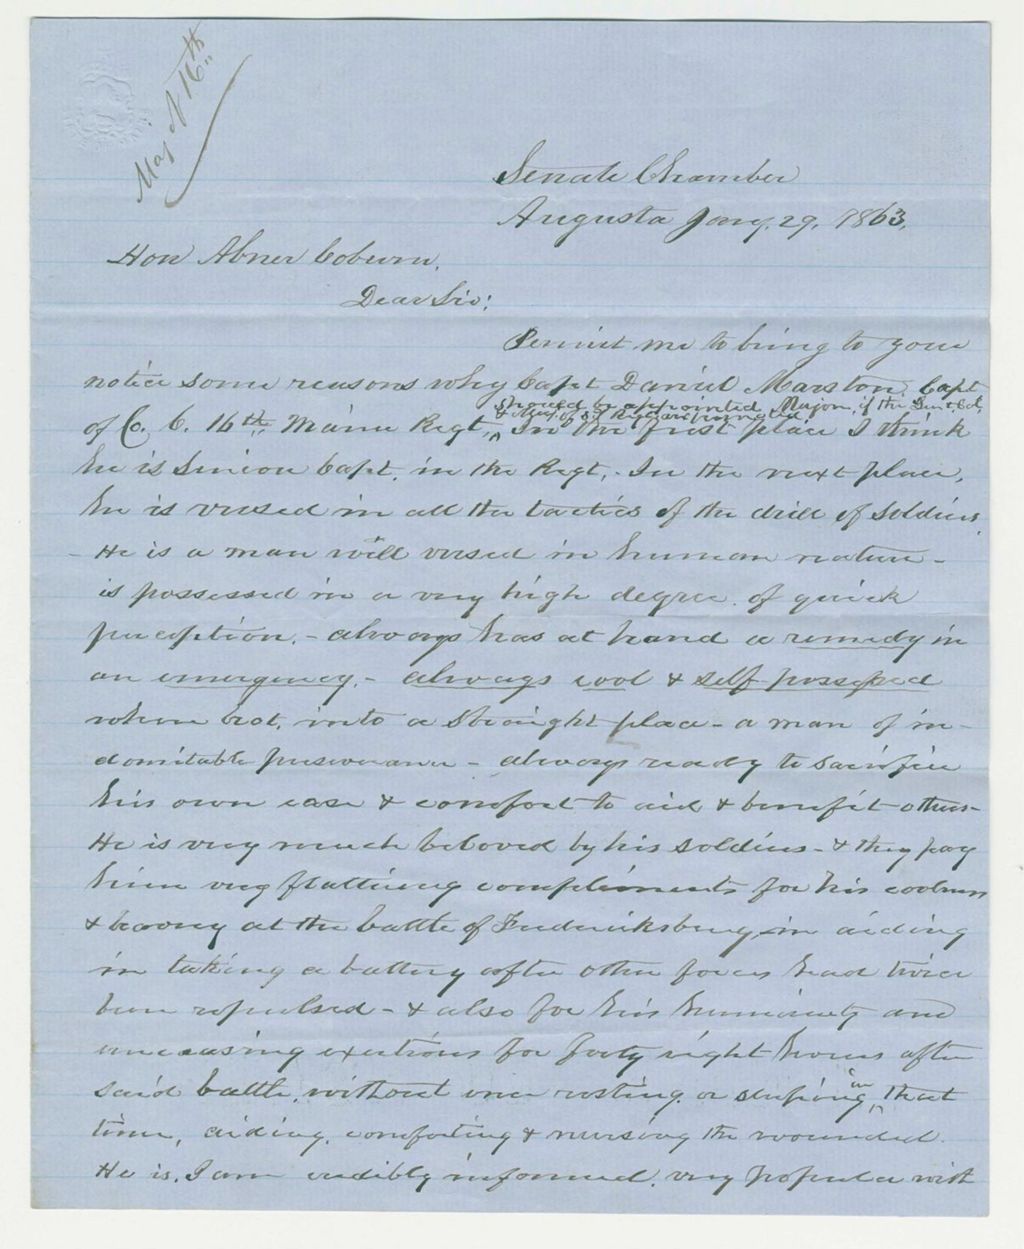 Maj of 16th
Senate Chamber
Augusta Jany. 29, 1863.
Hon Abner Coburn,
Dear Sir:
Permit me to bring to your
notice some reasons why Capt Daniel Marston, Capt
should be appointed Major, if the Lieut Col,
of Co. C. 16th Maine Regt, In the first place I think
he is Senior Capt. in the Regt,. In the next place,
he is versed in all the tactics of the drill of soldiers.
- He is a man well versed in human nature -
is possessed in a very high degree of quick
perception, - always has at hand a remedy in
an emergency, - always cool & self possessed
when brot, into a straight place - a man of in-
domitable perseverance - always ready to sacrifice
his own ease & comfort to aid & benefit others -
He is very much beloved by his soldiers - & they pay
him very flattering compliments for his coolness
& bravery at the battle of Fredericksburg, in aiding
in taking a battery after other forces had twice
been repulsed - & also for his humanity and
unceasing exertions for forty eight hours after
said battle, without once resting or sleeping in that
time, aiding, comforting & nursing the wounded.
He is, I am credibly informed, very popular with